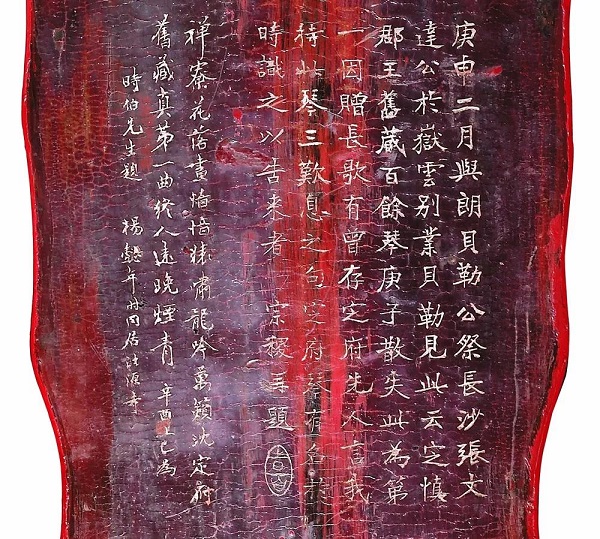 庚申二月與朗貝勒公祭長沙張文
達公於嶽雲別業貝勒見此云定慎
郡王舊藏百餘琴庚子散失此為第
一因贈長歌有曾存定府先人言我
待此琴三歎息之句定府琴有名於
時識之以告來者 宗稷再題
禅寮花落晝愔愔猿嘯龍吟萬籟沈定府
舊藏真第一曲終人遠晚煙青 辛酉上巳為
時伯先生題 楊懿年時同居法源寺